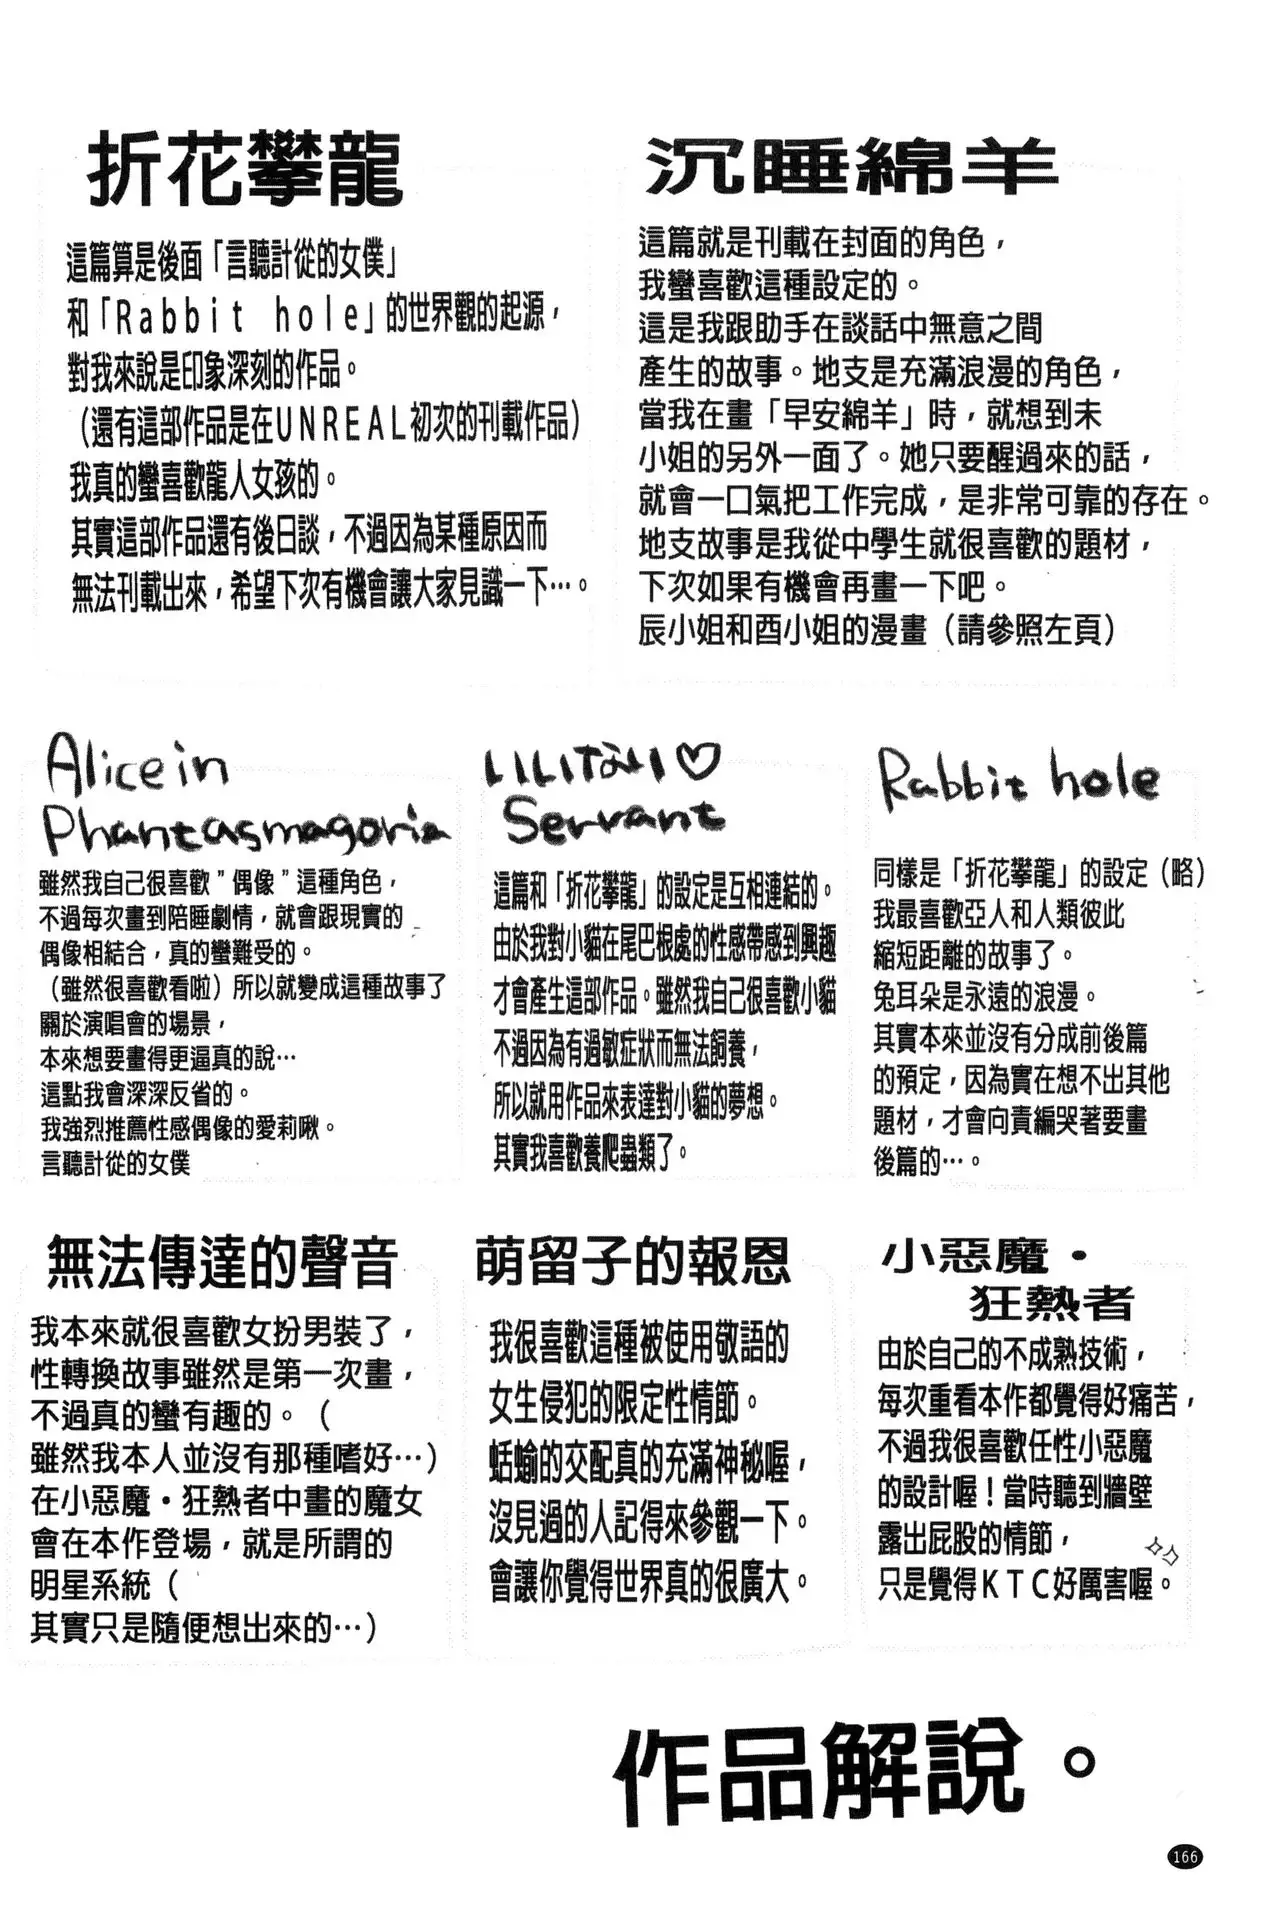 沉睡綿羊
這篇就是刊載在封面的角色，
我蠻喜歡這種設定的。
這是我跟助手在談話中無意之間
產生的故事。地支是充滿浪漫的角色，
當我在畫「早安綿羊」時，就想到未
小姐的另外一面了。她只要醒過來的話，
就會一口氣把工作完成，是非常可靠的存在。
地支故事是我從中學生就很喜歡的題材，
下次如果有機會再畫一下吧。
辰小姐和酉小姐的漫畫（請參照左頁）
折花攀龍
這篇算是後面「言聽計從的女僕」
和「Rabbit hole」的世界觀的起源，
對我來說是印象深刻的作品。
（還有這部作品是在UNREAL初次的刊載作品）
我真的蠻喜歡龍人女孩的。
其實這部作品還有後日談，不過因為某種原因而
無法刊載出來，希望下次有機會讓大家見識一下…。
Rabbit hole
同樣是「折花攀龍」的設定（略）
我最喜歡亞人和人類彼此
縮短距離的故事了。
兔耳朵是永遠的浪漫。
其實本來並沒有分成前後篇
的預定，因為實在想不出其他
題材，才會向責編哭著要畫
後篇的…。
いいなり♡
Servant
這篇和「折花攀龍」的設定是互相連結的。
由於我對小貓在尾巴根處的性感帶感到興趣
才會產生這部作品。雖然我自己很喜歡小貓
不過因為有過敏症狀而無法飼養，
所以就用作品來表達對小貓的夢想。
其實我喜歡養爬蟲類了。
Alice in
Phantasmagoria
雖然我自己很喜歡"偶像"這種角色，
不過每次畫到陪睡劇情，就會跟現實的
偶像相結合，真的蠻難受的。
（雖然很喜歡看啦）所以就變成這種故事了
關於演唱會的場景，
本來想要畫得更逼真的說…
這點我會深深反省的。
我強烈推薦性感偶像的愛莉啾。
言聽計從的女僕
小惡魔・
狂熱者
由於自己的不成熟技術，
每次重看本作都覺得好痛苦，
不過我很喜歡任性小惡魔
的設計喔！當時聽到牆壁
露出屁股的情節，
只是覺得KTC好厲害喔。
萌留子的報恩
我很喜歡這種被使用敬語的
女生侵犯的限定性情節。
蛞蝓的交配真的充滿神秘喔，
沒見過的人記得來參觀一下。
會讓你覺得世界真的很廣大。
無法傳達的聲音
我本來就很喜歡女扮男裝了，
性轉換故事雖然是第一次畫，
不過真的蠻有趣的。（
雖然我本人並沒有那種嗜好…）
在小惡魔・狂熱者中畫的魔女
會在本作登場，就是所謂的
明星系統（
其實只是隨便想出來的…）
作品解說。
166